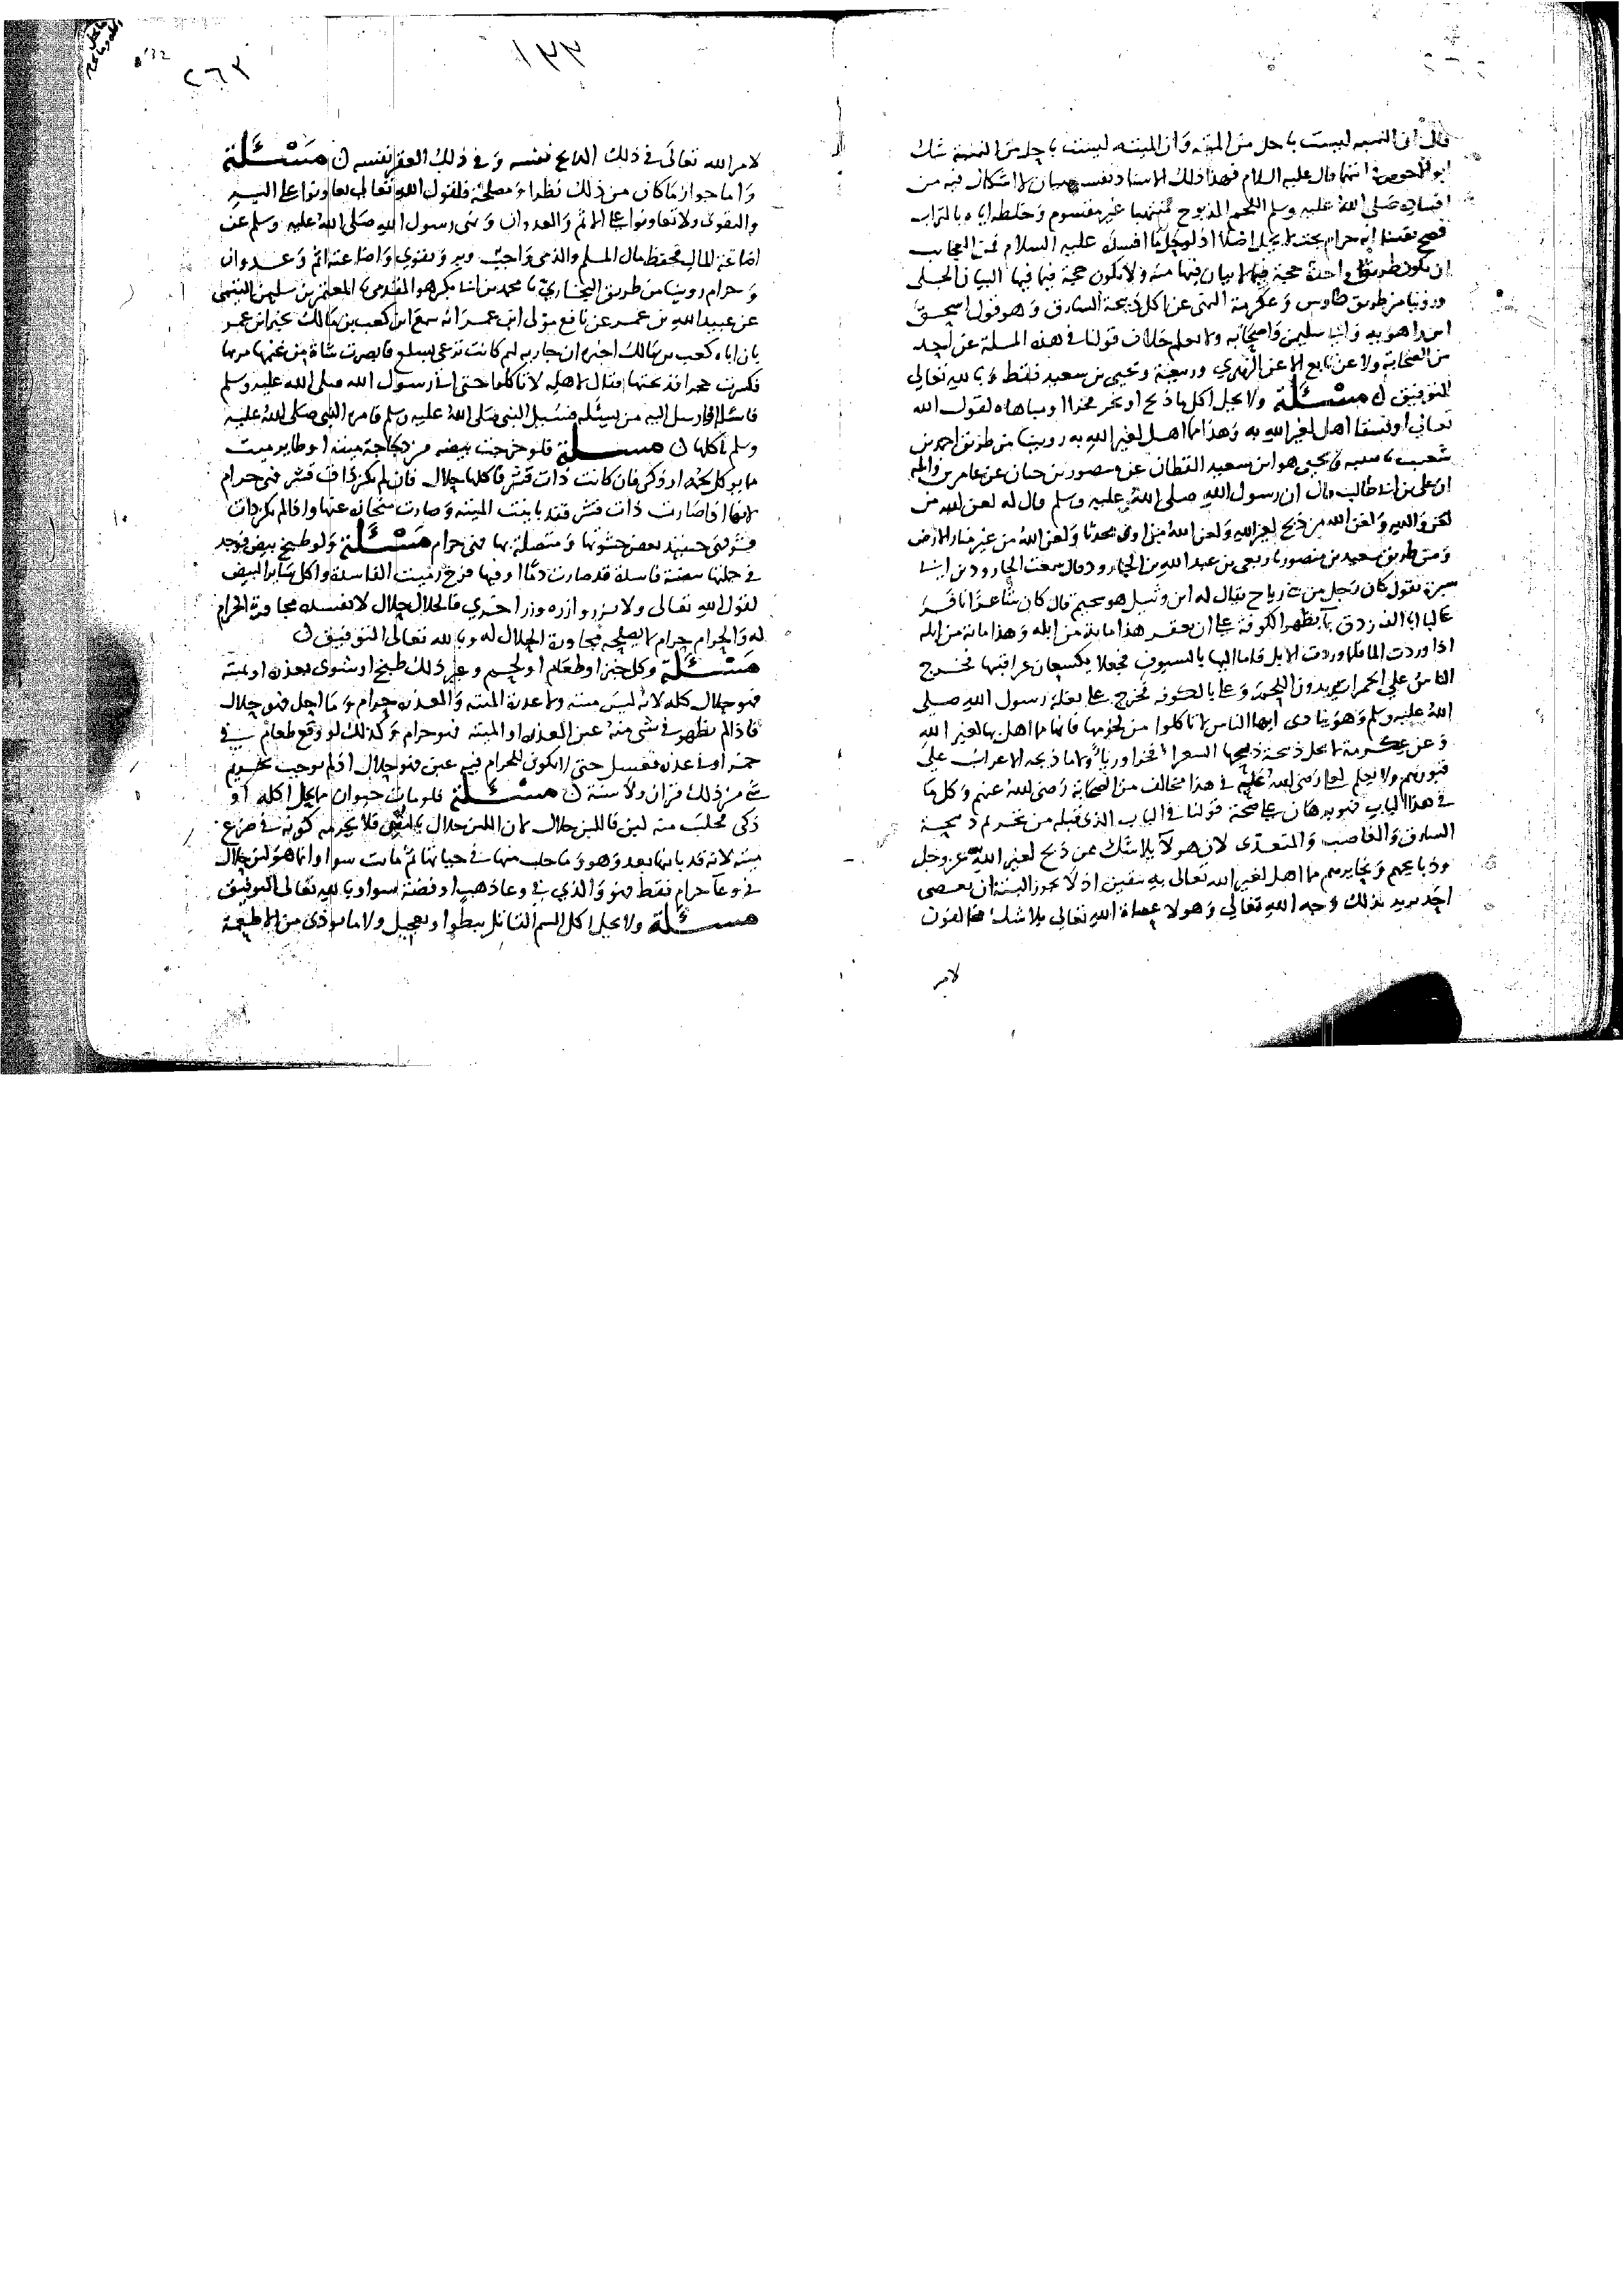 قال ان النهبه ليست باحل من الميتة وان الميته ليست باحل من النهبة شك
ابو الاحوص في ايتهما قال عليه السلام فهذا ذلك الاسناد نفسه ببيان لا اشكال فيه من
افساده صلى الله عليه وسلم اللحم المذبوح منتهبا غير مقسوم وخلطه اياه بالتراب
فصح يقينا انه حرام بحت لا يحل اصلا اذ لو حل لما افسده عليه السلام فمن العجايب
ان يكون طريق واحدة حجة فيما لا بيان فيها منه ولا تكون حجة فيما فيها البيان الجلي
وروينا من طريق طاوس وعكرمة النهى عن اكل ذبيحة السارق وهو قول اسحق
ابن راهويه وابى سليمن واصحابه ولا نعلم خلاف قولنا فى هذه المسلة عن احد
من الصحابة ولا عن تابع الا عن الزهري وربيعة ويحيى بن سعيد فقط وبالله تعالي
التوفيق ن مسئلة ولا يحل اكل ما ذبح او نحر فخرا او مباهاه لقول الله
تعالى او فسقا اهل لغير الله به وهذا مما اهل لغير الله به روينا من طريق احمد بن
شعيب نا يحيى هو ابن سعيد القطان عن منصور بن حيان عن عامر بن واثلة
ان على بن ابى طالب قال ان رسول الله صلى الله عليه وسلم قال له لعن الله من
لعن والديه ولعن الله من ذبح لغير الله ولعن الله من اوى محدثا ولعن الله من غير منار الارض
ومن طريق سعيد بن منصور نا ربعى بن عبد الله بن الجارود قال سمعت الجارود بن ابى
سبرة يقول كان رجل من بنى رياح يقال له ابن وثيل هو سحيم قال كان شاعرا نافر
غالبا ابا الفرزدق بمآ بظهر الكوفة على ان يعقر هذا ماية من ابله وهذا ماية من ابله
اذا وردت الما فلما وردت الابل قاما اليها بالسيوف فجعلا يكسعان عراقيبها فخرج
الناس على الحمرات يريدون اللحم وعلى بالكوفه فخرج على بغلة رسول الله صلى
الله عليه وسلم وهو ينادى ايها الناس لا تاكلوا من لحومها فانما مما اهل بها لغير الله
وعن عكرمة لا تحل ذبيحة ذبحها الشعرا فخرا وريا ولا ما ذبحه الاعراب على
قبورهم ولا نعلم لعلى رضى الله عنه فى هذا مخالف من الصحابة رضى الله عنهم وكل ما
فى هذا الباب فهو برهان على صحة قولنا فى الباب الذى قبله من تحريم ذبيحة
السارق والغاصب والمتعدى لان هولا بلا شك ممن ذبح لغير الله عز وجل
وذبايحهم ونحايرهم مما اهل لغير الله تعالى به بيقين اذ لا يجوز البتة ان يعصى
احد يريد بذلك وجه الله تعالى وهولا عصاة الله تعالى بلا شك مخالفون
لامر
٢٦٢
١٣٣
لامر الله تعالى فى ذلك الذبح نفسه وفى ذلك العقر نفسه ن مسئلة
واما جواز ما كان من ذلك نظرا ومصلحة فلقول الله تعالى تعاونوا على البر
والتقوى ولا تعاونوا على الاثم والعدوان ونهى رسول الله صلى الله عليه وسلم عن
اضاعة المال فحفظ مال المسلم والذمى واجب وبر وتقوى واضاعته اثم وعدوان
وحرام روينا من طريق البخاري نا محمد بن ابى بكر هو المقدمى نا المعتمر بن سليمن التيمى
عن عبيد الله بن عمر عن نافع مولى ابن عمر انه سمع ابن كعب بن مالك يخبر ابن عمر
بان اباه كعب بن مالك اخبره ان جاريه لهم كانت ترعى بسلع فابصرت شاة من غنمها موتها
فكسرت حجرا فذبحتها فقال لاهله لا تاكلوا حتى اتى رسول الله صلى الله عليه وسلم
فاسئله او ارسل اليه من يسئله فسئل النبى صلى الله عليه وسلم فامره النبى صلى الله عليه
وسلم باكلها ن مسئلة فلو خرجت بيضه من دجاجة ميتة او طاير ميت
مما يوكل لحمه او ذكى فان كانت ذات قشر فاكلها حلال فان لم تكن ذات قشر فهى حرام
لانها اذا صارت ذات قشر فقد باينت الميته وصارت منحازه عنها واذا لم تكن ذات
قشر فهى حينيذ بعض حشوتها ومتصلة بها فهى حرام مسئلة ولو طبخ بيض فوجد
فى جملتها بيضة فاسدة قد صارت دما او فيها فرخ رميت الفاسدة واكل ساير البيض
لقول الله تعالى ولا تزر وازره وزر اخرى فالحلال حلال لا يفسده مجاورة الحرام
له والحرام حرام لا يصلحه مجاورة الحلال له وبالله تعالى التوفيق ن
مسئلة وكل خبز او طعام او لحم وغير ذلك طبخ او شوى بعذرة او بميته
فهو حلال كله لانه ليس ميته ولا عذرة الميته والعذره حرام وما احل فهو حلال
فاذا لم يظهر فى شى منه عين العذرة او الميته فهو حرام وكذلك لو وقع طعام فى
خمر او فى عذره فغسل حتى لا يكون للحرام فيه عين فهو حلال اذ لم يوجب تحريم
شى من ذلك قران ولا سنة ن مسئلة فلو مات حيوان مما يحل اكله او
ذكى فحلب منه لبن فاللبن حلال لان اللبن حلال بالنص فلا يحرمه كونه فى ضرع
ميته لانه قد باينها بعد وهو وما حلب منها فى حياتها ثم ماتت سوا وانما هو لبن حلال
فى وعآ حرام فقط فهو والذي فى وعا ذهب او فضة سوا وبالله تعالى التوفيق
مسئلة ولا يحل اكل السم القاتل ببطو او تعجيل ولا ما يوذى من الاطعمة